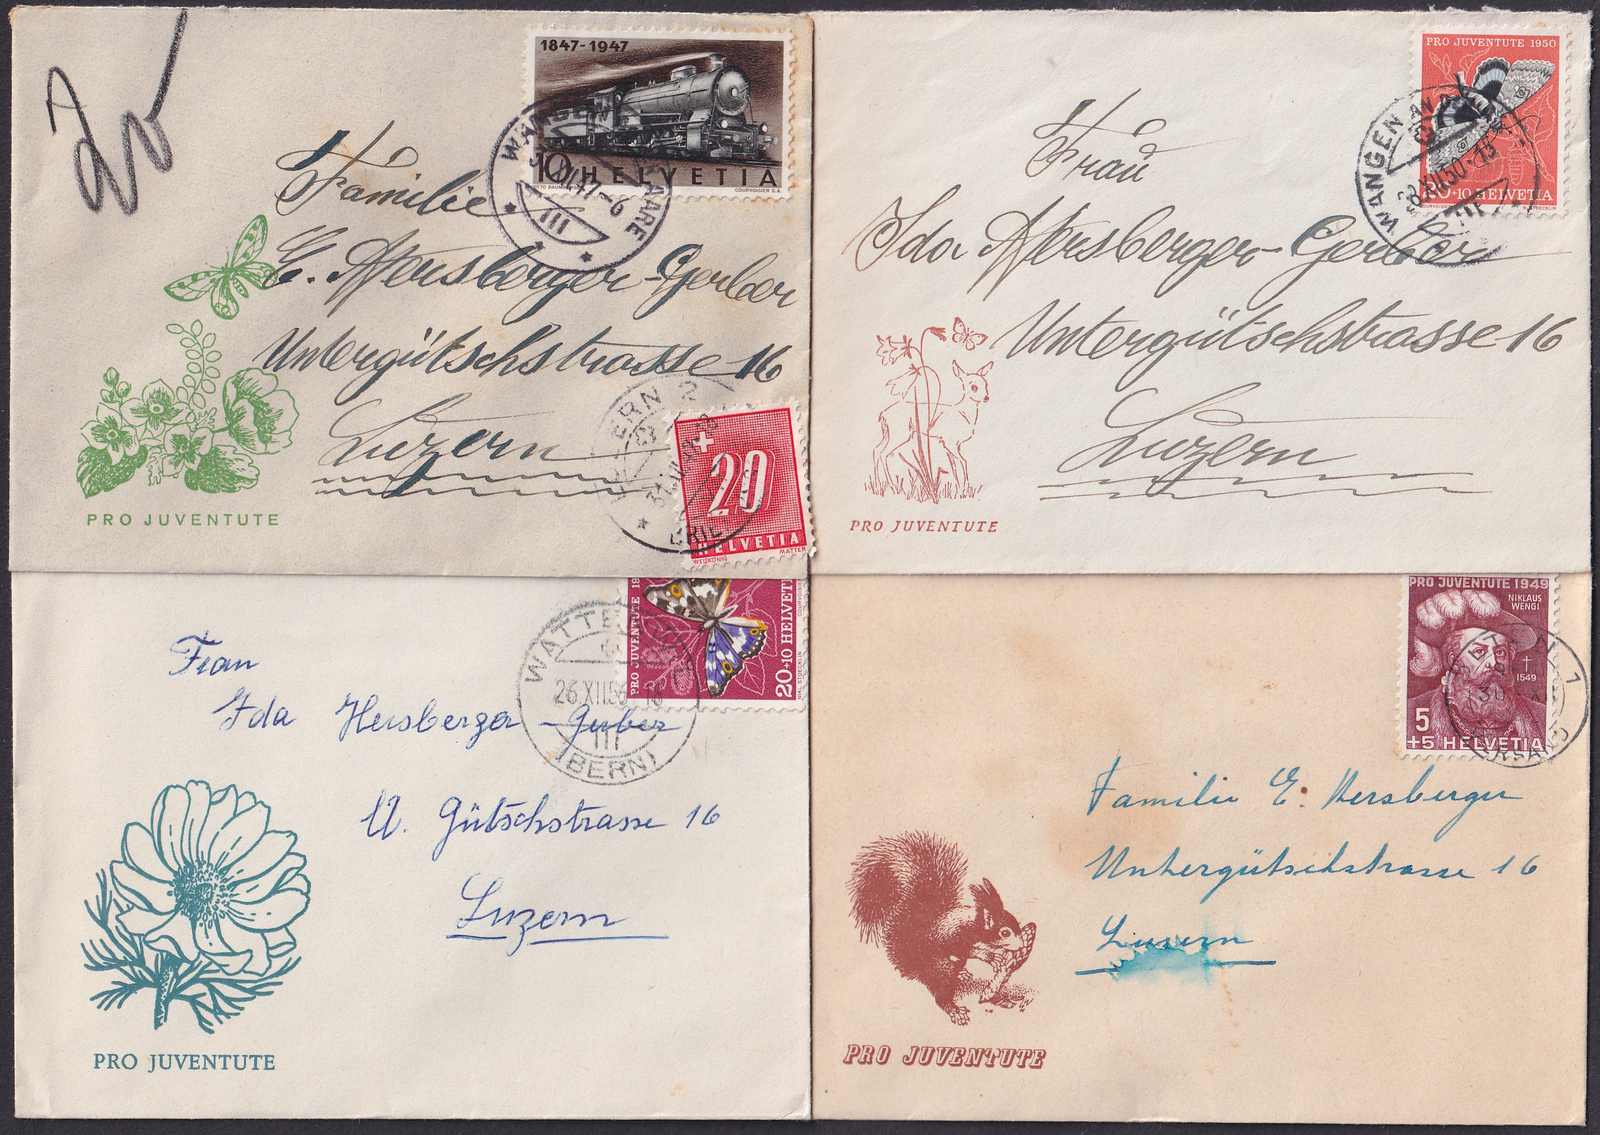 20
1847-1947
10 HELVETIA
OTTO BAUMBERGER
COURVOISIER S.A.
WANGEN AARE
47-6
III
Familie
E. Hersberger-Gerber
Untergütschstrasse 16
Luzern
PRO JUVENTUTE
+
20
HELVETIA
MATTER
PRO JUVENTUTE 1950
+10 HELVETIA
WANGEN A
28.XII.50-13
III
Frau
Ida Hersberger-Gerber
Untergütschstrasse 16
Luzern
PRO JUVENTUTE
PRO JUVENTUTE 19
20+10 HELVETI
26.XII.56-18
III
(BERN)
Frau
Ida Hersberger-Gerber
U. Gütschstrasse 16
Luzern
PRO JUVENTUTE
PRO JUVENTUTE 1949
NIKLAUS
WENGI
†
1549
5
+5 HELVETIA
1
Familie E. Hersberger
Untergütschstrasse 16
Luzern
PRO JUVENTUTE